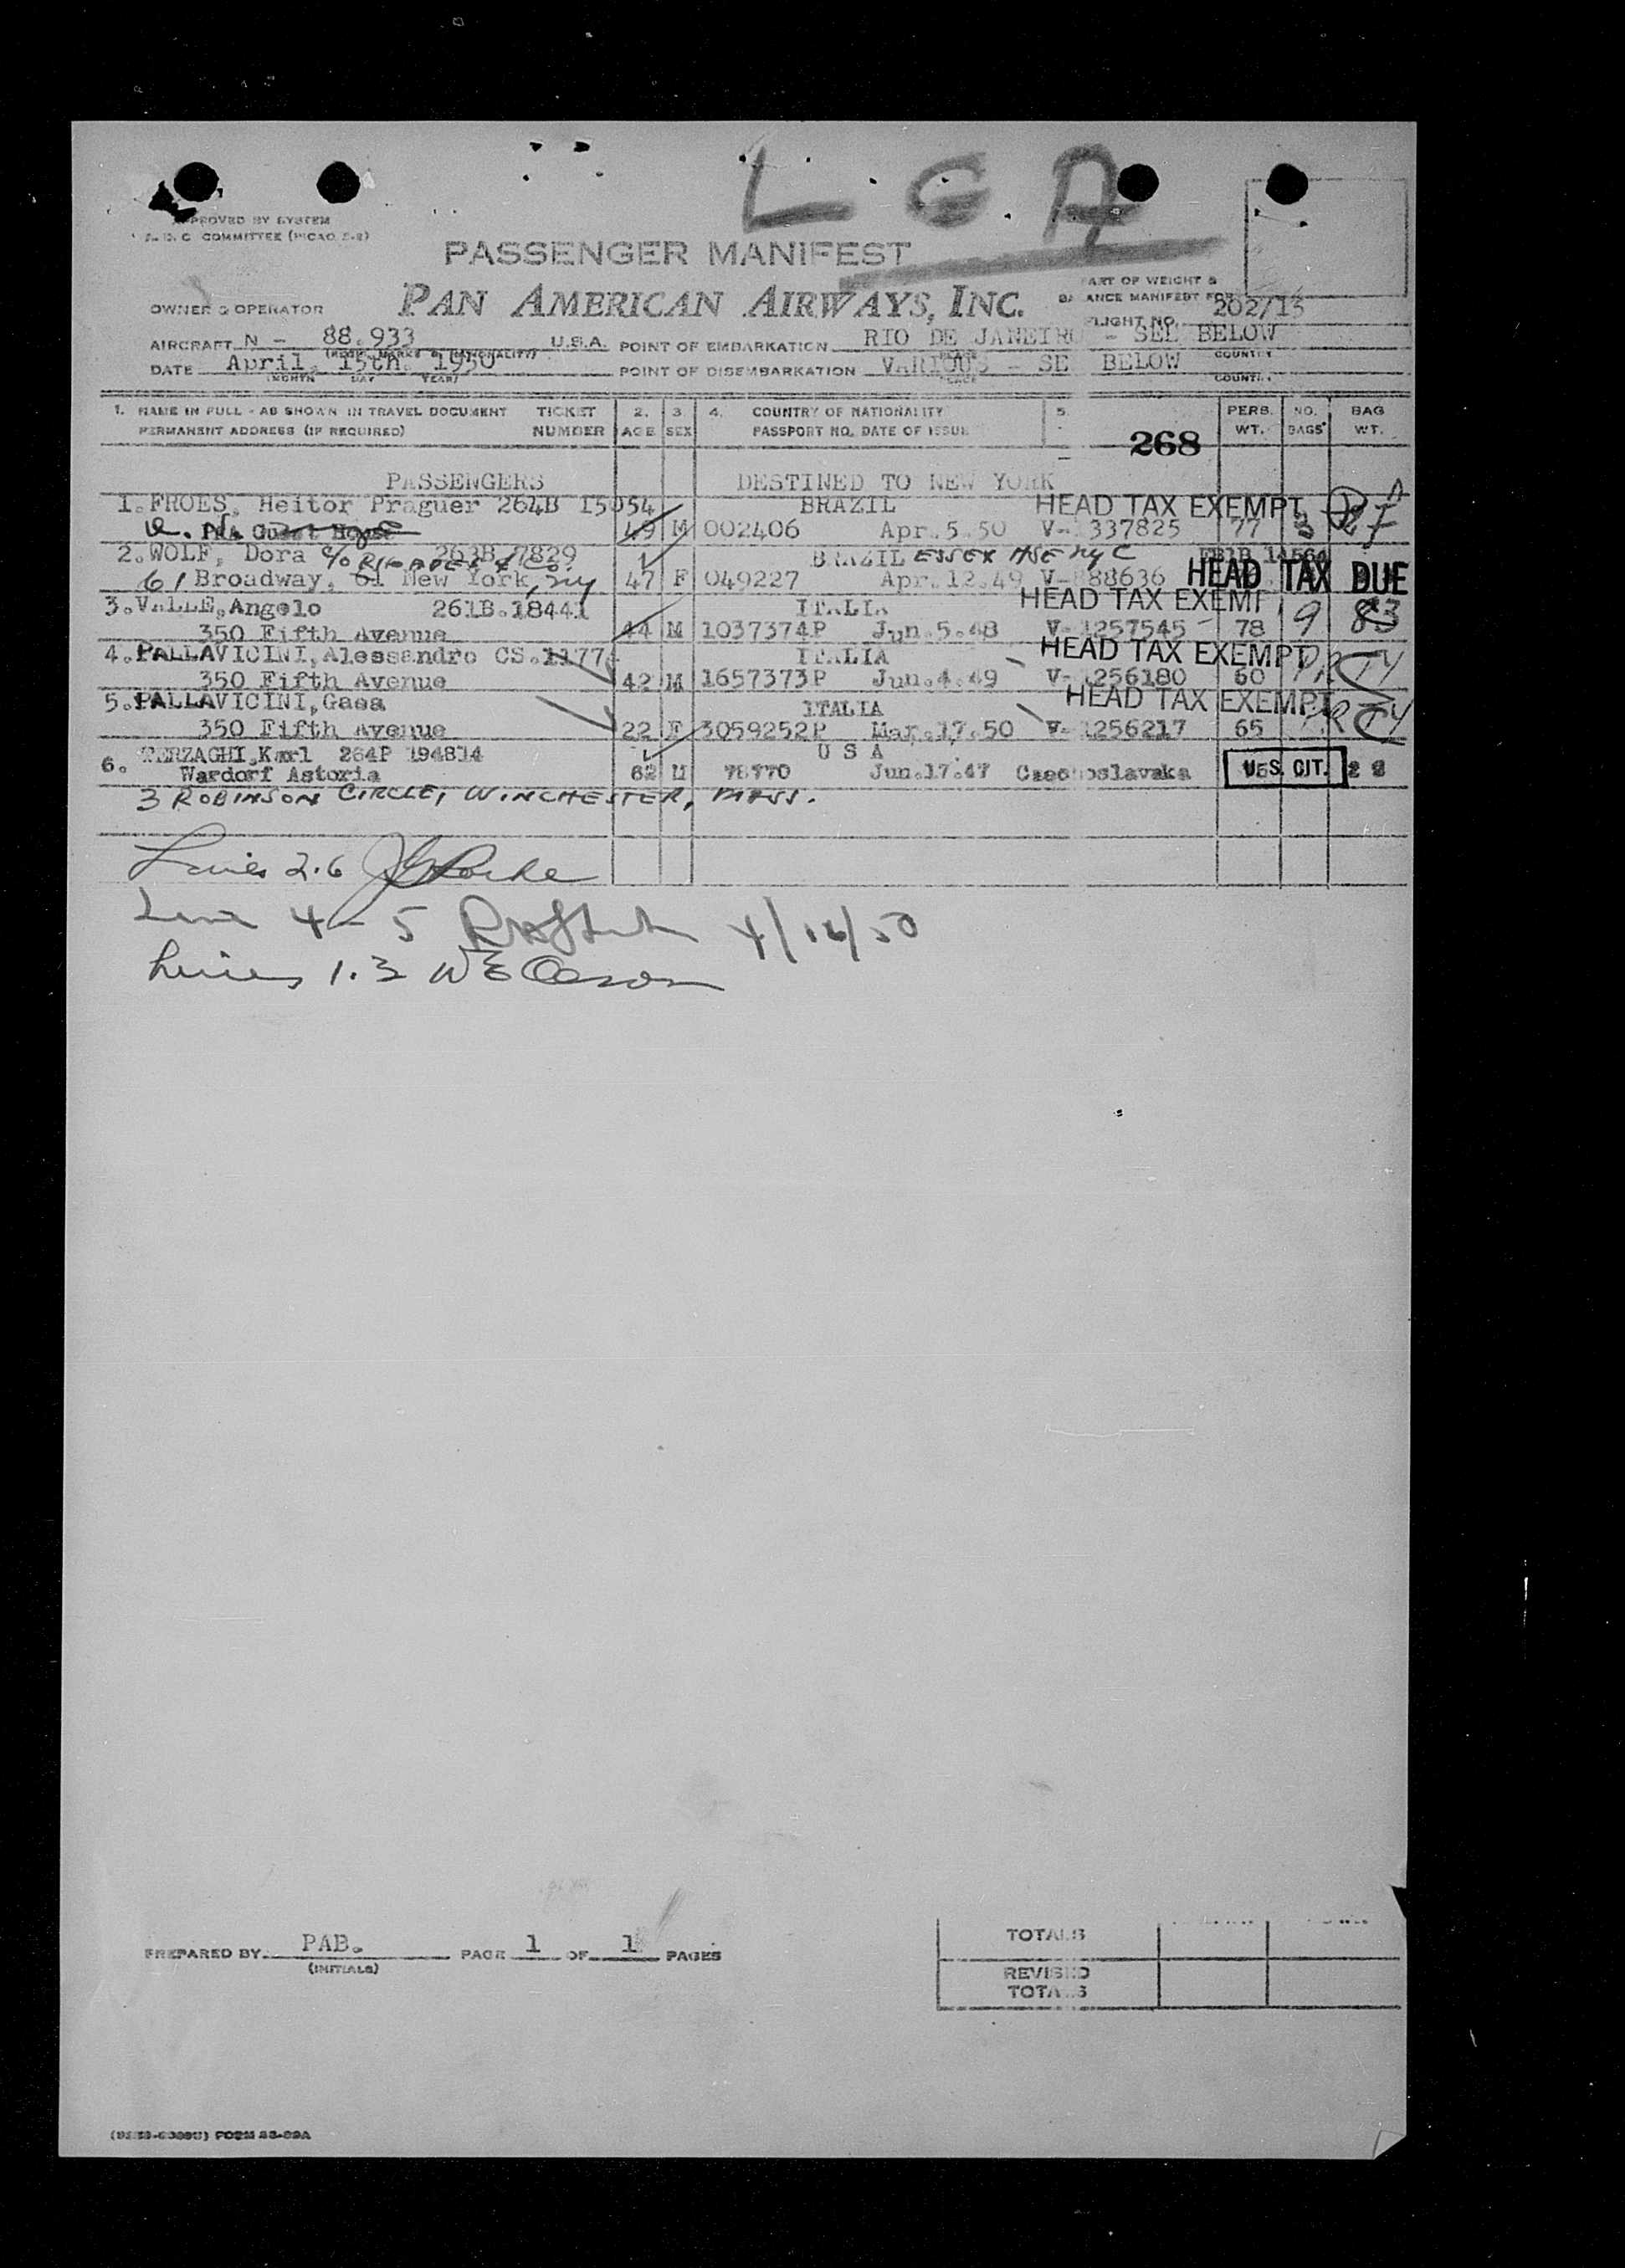 LGA
APPROVED BY SYSTEM
COMMITTEE (PICAO
PASSENGER MANIFEST
PART OF WEIGHT &
BALANCE MANIFEST FOR
OWNER & OPERATOR PAN AMERICAN AIRWAYS, INC.
FLIGHT NO. 202/15
AIRCRAFT N - 88.933 U.S.A. POINT OF EMBARKATION RIO DE JANEIRO - SEE BELOW
(REGIS. MARKS & NATIONALITY) PLACE COUNTRY
DATE April, 15th. 1950 POINT OF DISEMBARKATION VARIOUS - SEE BELOW
(MONTH DAY YEAR) PLACE COUNTRY
1. NAME IN FULL - AS SHOWN IN TRAVEL DOCUMENT TICKET 2. 3 4. COUNTRY OF NATIONALITY 5. PERS. NO. BAG
PERMANENT ADDRESS (IF REQUIRED) NUMBER AGE SEX PASSPORT NO. DATE OF ISSUE WT. BAGS WT.
268
PASSENGERS DESTINED TO NEW YORK
1.FROES, Heitor Praguer 264B 15054 BRAZIL HEAD TAX EXEMPT
Guest House 49 M 002406 Apr.5.50 V- 337825 77 3 27
2.WOLF, Dora c/o 263B.7829 BRAZIL ESSEX HSE NYC
61 Broadway, 61 New York, NY 47 F 049227 Apr.12.49 V-888636 HEAD TAX DUE
3.VALLE,Angelo 261B.18441 ITALIA HEAD TAX EXEMPT
350 Fifth Avenue 44 M 1037374P Jun.5.48 V-1257545 78 9 83
4.PALLAVICINI,Alessandro CS.1177 ITALIA HEAD TAX EXEMPT
350 Fifth Avenue 42 M 1657373P Jun.4.49 V-1256180 60 PRTY
5.PALLAVICINI,Gasa ITALIA HEAD TAX EXEMPT
350 Fifth Avenue 22 F 3059252P Mar.17.50 V-1256217 65 PRTY
6. TERZAGHI,Karl 264P 194814 U S A
Wardorf Astoria 62 M 78770 Jun.17.47 Czechoslavaka U.S. CIT.
3 ROBINSON CIRCLE, WINCHESTER, MASS.
Lines 2.6
Line 4-5 4/16/50
Lines 1.3
PREPARED BY PAB. PAGE 1 OF 1 PAGES
(INITIALS)
TOTALS
REVISED
TOTALS